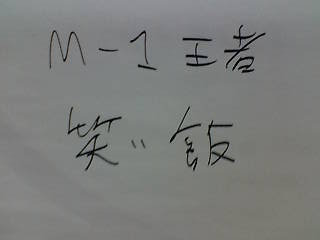 M-1王者
笑い飯